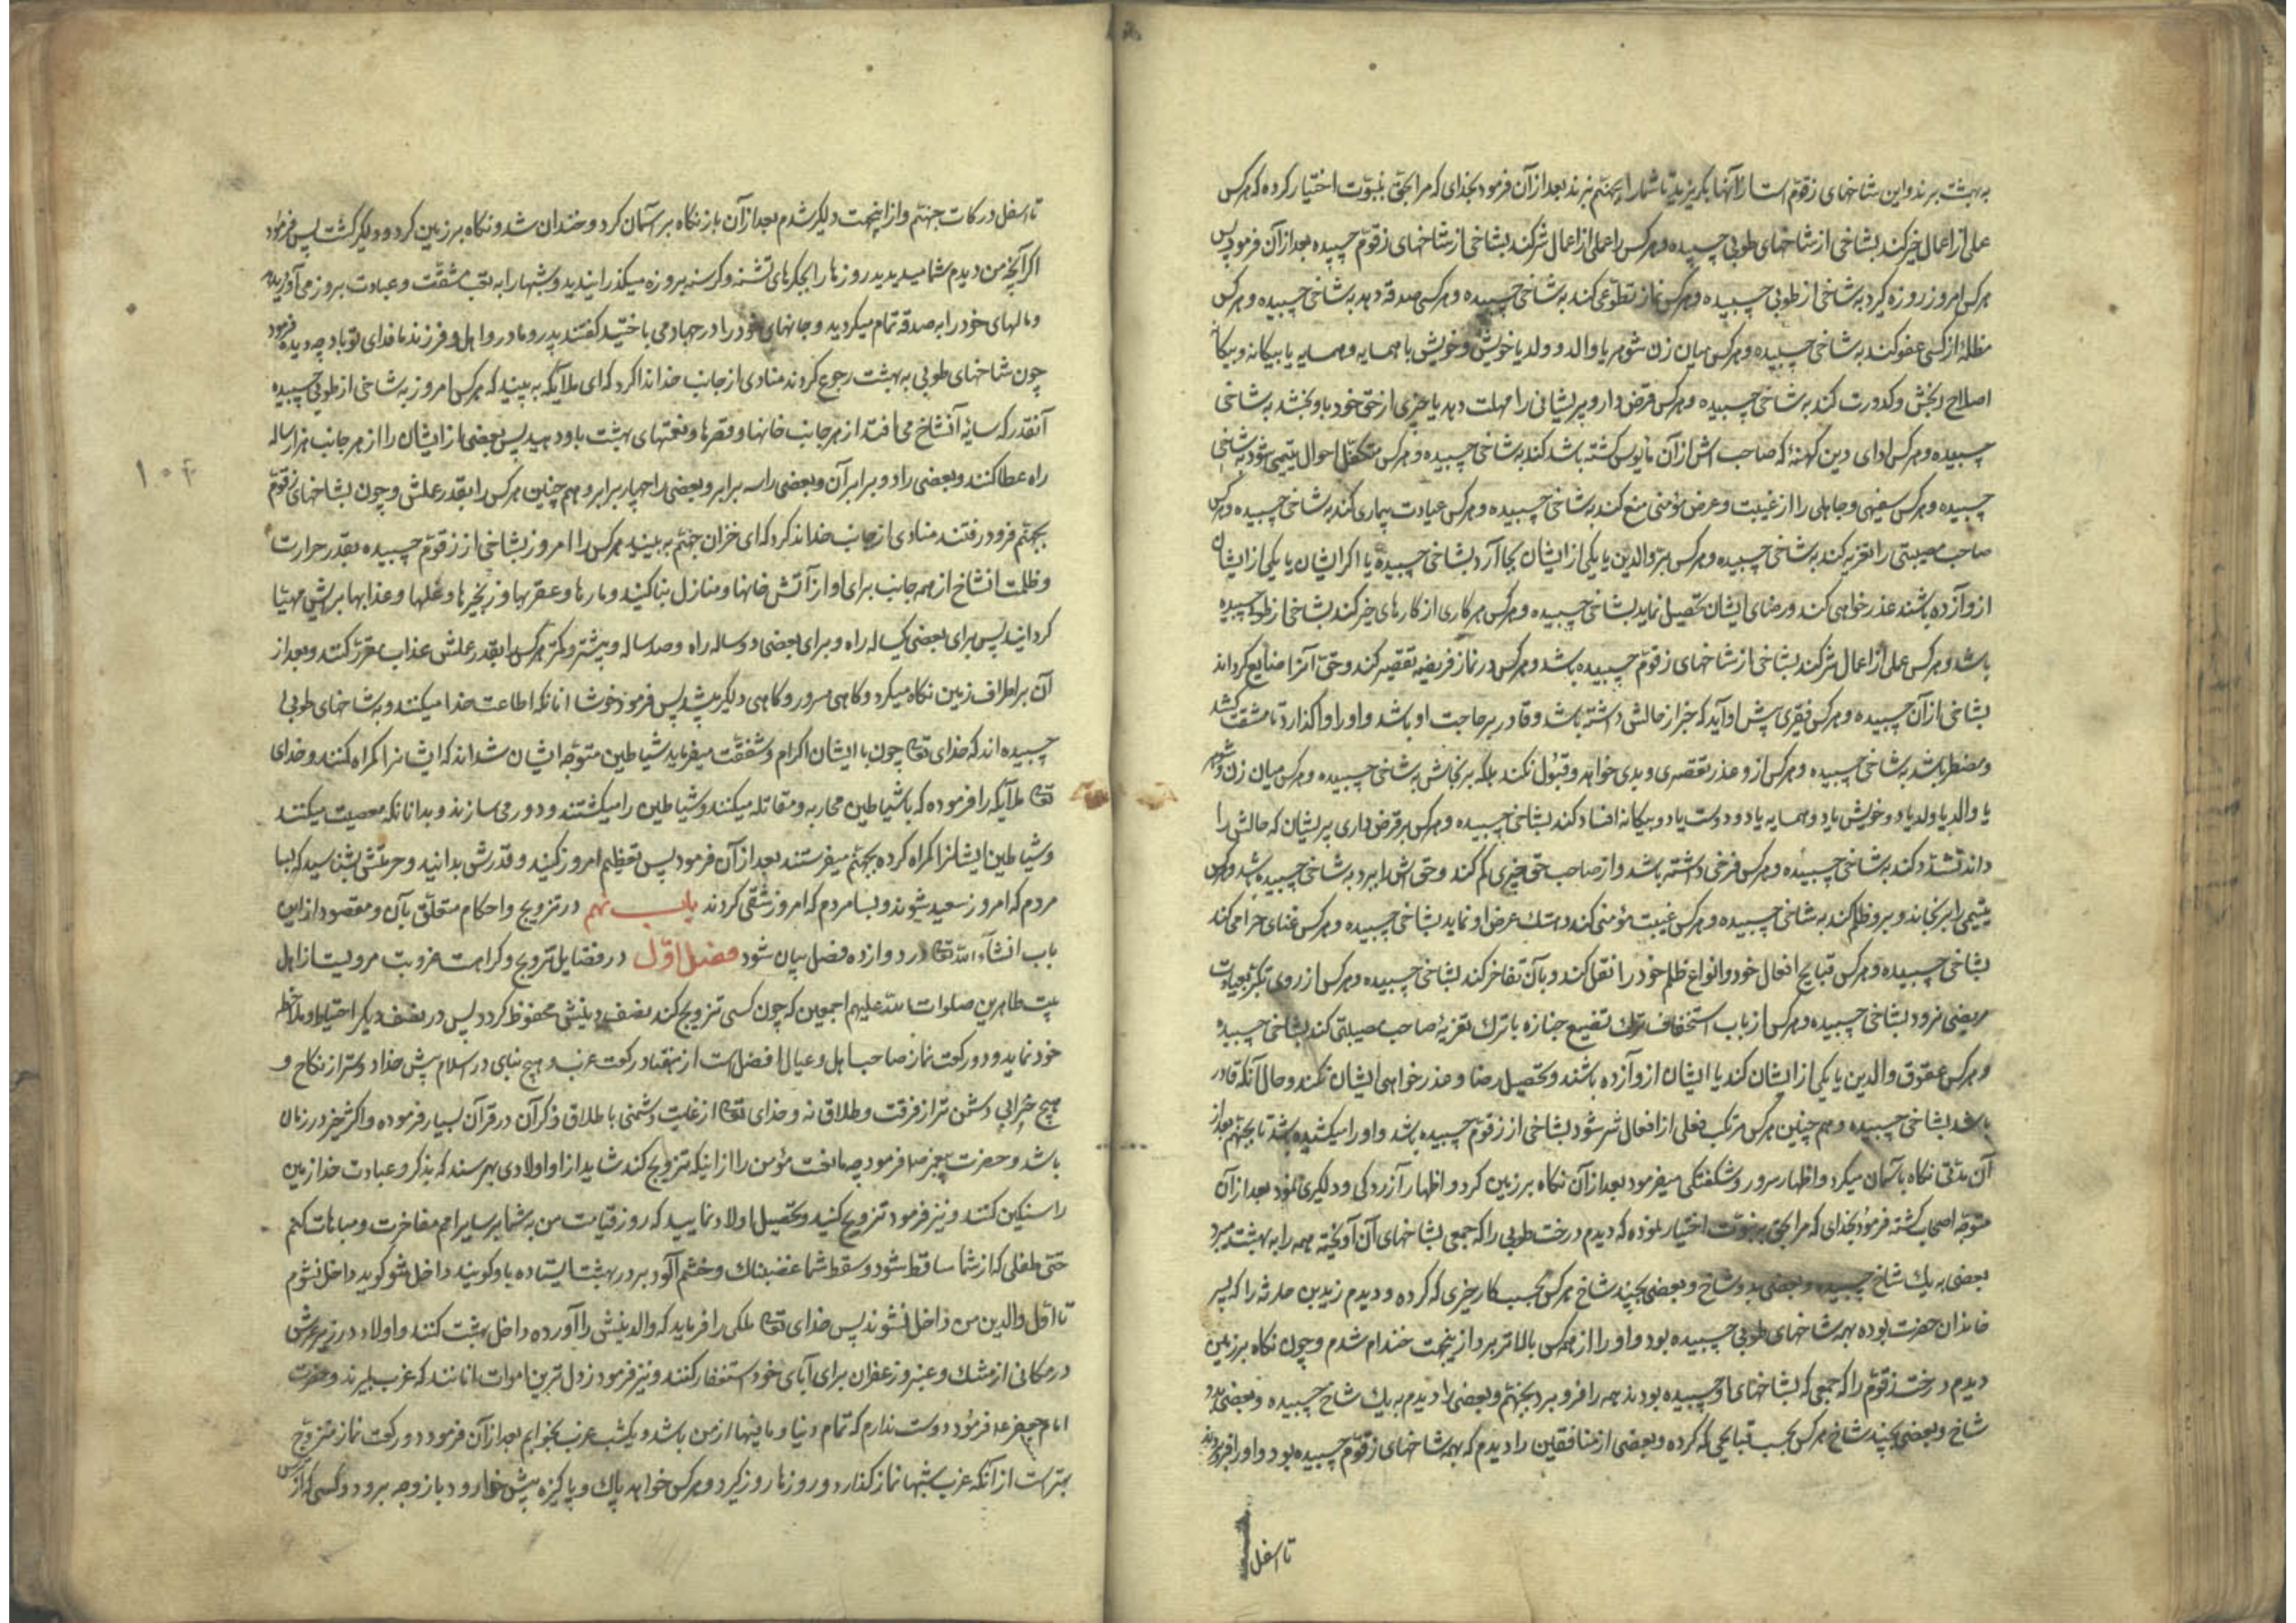 به بهشت برند و این شاخهای زقوّم است از آنها بگریزید تا شما را بجهنّم نبرند بعد از آن فرمود بخدای که مرا بحقّ بنبوّت اختیار کرده که هرکس
عملی از اعمال خیر کند بشاخی از شاخهای طوبی چسبیده و هرکس را عملی از اعمال شر کند بشاخی از شاخهای زقوّم چسبیده بعد از آن فرمود پس
هرکس امروز روزه گیرد به شاخی از طوبی چسبیده و هرکس نماز تطوّعی کند به شاخی چسبیده و هرکس صدقه دهد به شاخی چسبیده و هرکس
مظلمۀ از کسی عفو کند به شاخی چسبیده و هرکس میان زن شوهر یا والد و ولد یا خویش و خویش یا همسایه و همسایه یا بیکانه و بیکانه
اصلاح رنجش و کدورت کند به شاخی چسبیده و هرکس قرض دار و پریشانی را مهلت دهد یا چیزی از حقّ خود باو بخشد به شاخی
چسبیده و هرکس ادای دین کهنۀ که صاحب اش از آن مایوس کشته باشد کند به شاخی چسبیده و هرکس متکفّل احوال یتیمی شود به شاخی
چسبیده و هرکس سفیهی و جاهلی را از غیبت و عرض مؤمنی منع کند به شاخی چسبیده و هرکس عیادت بیماری کند به شاخی چسبیده و هرکس
صاحب مصیبتی را تعزیه کند به شاخی چسبیده و هرکس برّ والدین یا یکی از ایشان بجا آرد بشاخی چسبیده یا اکر ایشان یا یکی از ایشان
ازو آزده باشند عذر خواهی کند و رضای ایشان تحصیل نماید بشاخی چسبیده و هرکس هر کاری از کارهای خیر کند بشاخی از طوبی چسبیده
باشد و هرکس عملی از اعمال شر کند بشاخی از شاخهای زقوّم چسبیده باشد و هرکس در نماز فریضه تقصیر کند و حقّ آنرا ضایع کرداند
بشاخی از آن چسبیده و هرکس فقیری پیش او آید که خبر از حالش داشته باشد و قادر بر حاجت او باشد و او را واکذارد تا مشقت کشد
و مضطر باشد به شاخی چسبیده و هرکس ازو عذر تقصیری و بدی خواهد و قبول نکند بلکه برنجاندش به شاخی چسبیده و هرکس میان زن و شوهر
یا والد یا ولد یا دو خویش یا دو همسایه یا دو دوست یا دو بیکانه افساد کند بشاخی چسبیده و هرکس بر قرض داری پریشان که حالش را
داند تشدّد کند به شاخی چسبیده و هرکس قرضی داشته باشد و از صاحب حقّ چیزی کم کند و حقّ اش را برد به شاخی چسبیده باشد و هرکس
یتیمی را برنجاند و برو ظلم کند به شاخی چسبیده و هرکس غیبت مؤمنی کند و هتك عرض او نماید بشاخی چسبیده و هرکس غنای حرامی کند
بشاخی چسبیده و هرکس قبایح افعال خود و انواع ظلم خود را نقل کند و بآن تفاخر کند بشاخی چسبیده و هرکس از روی تکبّر بعیادت
مریضی نرود بشاخی چسبیده و هرکس از باب استخفاف ترك تشییع جنازه یا ترك تعزیۀ صاحب مصیبتی کند بشاخی چسبیده
و هرکس عقوق والدین یا یکی از ایشان کند یا ایشان ازو آزده باشند و تحصیل رضا و عذر خواهی ایشان نکند و حال آنکه قادر
باشد بشاخی چسبیده و هم چنین هرکس مرتکب فعلی از افعال شر شود بشاخی از زقوّم چسبیده باشد و او را میکشیده باشد تا بجهنّم بعد از
آن مدّتی نکاه بآسمان میکرد و اظهار سرور و شکفتکی میفرمود بعد از آن نکاه بر زمین کرد و اظهار آزردکی و دلکیری نمود بعد از آن
متوجّه اصحاب کشته فرمود بخدای که مرا بحقّ به نبوّت اختیار نموده که دیدم درخت طوبی را که جمعی بشاخهای آن آویخته همه را به بهشت میبرد
بعضی به یك شاخ چسبیده و بعضی بدو شاخ و بعضی بچند شاخ هرکس بحسب کار خیری که کرده و دیدم زید بن حارثه را که پسر
خاندان حضرت بوده بهمه شاخهای طوبی چسبیده بود و او را از همه کس بالاتر برد ازینجهت خندام شدم و چون نکاه بر زمین
دیدم درخت زقوّم را که جمعی که بشاخهای او چسبیده بودند همه را فرو برد بجهنّم و بعضی را دیدم به یك شاخ چسبیده و بعضی بدو
شاخ و بعضی بچند شاخ هرکس بحسب قبایحی که کرده و بعضی از منافقین را دیدم که بهمه شاخهای زقوّم چسبیده بود و او را فرو بردند
تا اسفل
تا اسفل درکات جهنّم و از اینجهت دلکیر شدم بعد از آن باز نکاه بر آسمان کرد و خندان شد و نکاه بر زمین کرد و دلکیر کشت پس فرمود
اکر آنچه من دیدم شما میدیدید روزها را بجکرهای تشنه و کرسنه بروزه میکذرانیدید و شبها را به تعب مشقّت و عبادت بروز می آوردید
و مالهای خود را به صدقه تمام میکردید و جانهای خود را در جهاد می باختید کفتند پدر و مادر و اهل و فرزند ما فدای تو باد چه دیدۀ فرمود
چون شاخهای طوبی به بهشت رجوع کردند منادی از جانب خدا ندا کرد که ای ملایکه به بینید که هرکس امروز به شاخی از طوبی چسبیده
آنقدر که سایۀ آنشاخ می افتد از هر جانب خانها و قصرها و نعمتهای بهشت باو دهید پس بعضی از ایشان را از هر جانب هزار ساله
راه عطا کنند و بعضی را دو برابر آن و بعضی را سه برابر و بعضی را چهار برابر و هم چنین هرکس را بقدر عملش و چون بشاخهای زقوّم
بجهنّم فرو رفتند منادی از جانب خدا ندا کرد که ای خزان جهنّم به بینید هرکس را امروز بشاخی از زقوّم چسبیده بقدر حرارت
و ظلمت انشاخ از همه جانب برای او از آتش خانها و منازل بنا کنید و مارها و عقربها و زنجیرها و غلها و عذابها براش مهیّا
کردانید پس برای بعضی یکساله راه و برای بعضی دو ساله راه و صد ساله و بیشتر و کمتر هرکس را بقدر عملش عذاب مقرّر کنند و بعد از
آن بر اطراف زمین نکاه میکرد و کاهی مسرور و کاهی دلکیر میشد پس فرمود خوشا انانکه اطاعت خدا میکنند و به شاخهای طوبی
چسبیده اند که خدای تعا چون با ایشان اکرام و شفقّت میفرماید شیاطین متوجّه ایشان شده اند که ایشانرا کمراه کنند و خدای
تعا ملایکه را فرموده که با شیاطین محاربه و مقاتله میکنند و شیاطین را میکشتند و دور می سازند و بدا نانکه معصیت میکنند
و شیاطین ایشانرا کمراه کرده بجهنّم میفرستند بعد از آن فرمود پس تعظیم امروز کنید و قدرش بدانید و حرمتش بشناسید که بسا
مردم که امروز سعید شوند و بسا مردم که امروز شقی کردند باب نهم در تزویج و احکام متعلّق بآن و مقصود از این
باب انشآءالله تعا در دوازده فصل بیان شود فصل اوّل در فضایل تزویج و کراهت عزوبت مرویست از اهل
بیت طاهرین صلوات الله علیهم اجمعین که چون کسی تزویج کند نصف دینش محفوظ کردد پس در نصف دیکر احتیاط و ملاحظه
خود نماید و دو رکعت نماز صاحب اهل و عیال افضل است از هفتاد رکعت عزب و هیچ بنای در اسلام پیش خدا دوستر از نکاح و
هیچ خرابی دشمن تر از فرقت و طلاق نه و خدای تعا از غایت دشمنی با طلاق ذکر آن در قرآن بسیار فرموده و اکثر خیر در زنان
باشد و حضرت پیغمبر ص فرمود چه مانعست مؤمن را از اینکه تزویج کند شاید از او اولادی بهرسند که بذکر و عبادت خدا زمین
را سنکین کنند و نیز فرمود تزویج کنید و تحصیل اولاد نمایید که روز قیامت من به شما بر سایر امم مفاخرت و مباهات کنم
حتّی طفلی که از شما ساقط شود و سقط شما غضبناك و خشم آلود بر در بهشت ایستاده باو کویند داخل شو کوید داخل نشوم
تا اوّل والدین من داخل نشوند پس خدای تعا ملکی را فرماید که والدینش را آورده داخل بهشت کنند و اولاد در زیر عرش
در مکانی از مشك و عنبر و زعفران برای آبای خود استغفار کنند و نیز فرمود رذل ترین اموات انانند که عزب بمیرند و حضرت
امام جعفر ع فرمود دوست ندارم که تمام دنیا و مافیها از من باشد و یکشب عزب بخوابم بعد از آن فرمود دو رکعت نماز متزوّج
بهتر است از آنکه عزب شبها نماز کذارد و روزها روزه کیرد و هرکس خواهد پاك و پاکیزه پیش خدا رود با زوجه برود و کسی که از
۱۰۴